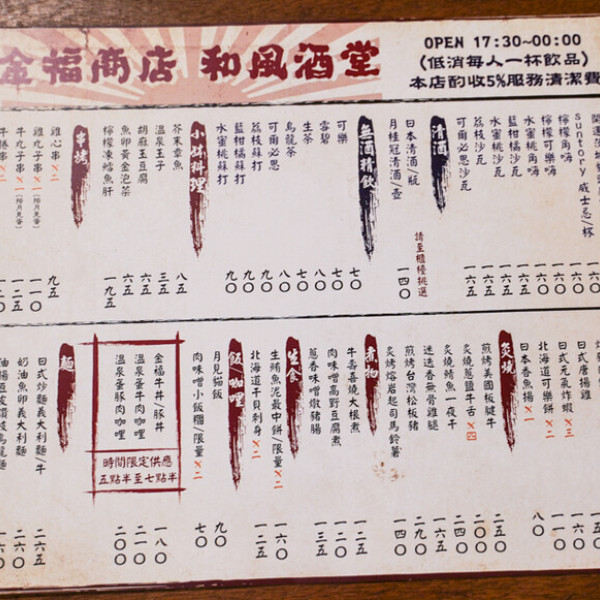 金福商店 和風酒堂
OPEN 17:30~00:00
(低消每人一杯飲品)
本店酌收5%服務清潔費
suntory 威士忌/杯
檸檬角嗨
檸檬可樂嗨
水蜜桃角嗨
藍柑橘沙瓦
水蜜桃沙瓦
荔枝沙瓦
可爾必思沙瓦
一六〇
一六〇
一六五
一六五
一六五
一六五
清酒
請至櫃檯挑選
日本清酒/瓶
月桂冠清酒/壺
一四〇
無酒精飲
可樂 七〇
雪碧 七〇
生茶 八〇
烏龍茶 八〇
可爾必思 九〇
荔枝蘇打 九〇
藍柑橘蘇打 九〇
水蜜桃蘇打 九〇
小缽料理
芥末章魚 八五
溫泉玉子 三五
胡麻豆腐 六五
魚卵黃金泡菜 六五
檸檬凍鱈魚肝 一九五
串烤
雞心串 ×二 九五
雞丸子串 ×一 一一〇
牛丸子串 ×一 一二五
牛捲串
日式唐揚雞
日式元氣炸蝦 ×三
北海道可樂餅 ×二
日本香魚揚 ×一 八〇
炙燒
煎烤美國板腱牛 二五〇
炙燒蔥鹽牛舌 ×四 二〇〇
炙燒鯖魚一夜干
迷迭香無骨雞腿 一六五
煎烤台灣松板豬 二九〇
炙烤熔岩起司馬鈴薯 一四〇
煮物
牛壽喜燒大根煮 一二五
肉味噌高野豆腐煮
蔥香味噌燉豬腸 一三五
生食
生鮪魚泥最中餅/限量 ×二 一六〇
北海道干貝刺身 ×二 一二五
飯/咖哩
月見貓飯 九〇
肉味噌小飯糰/限量 ×二 七〇
金福牛丼/豚丼 一八〇
溫泉蛋牛肉咖哩 二一〇
溫泉蛋豚肉咖哩 二〇〇
時間限定供應
五點半至七點半
麵
日式炒麵義大利麵/牛 二六五
奶油魚卵義大利麵 二六〇